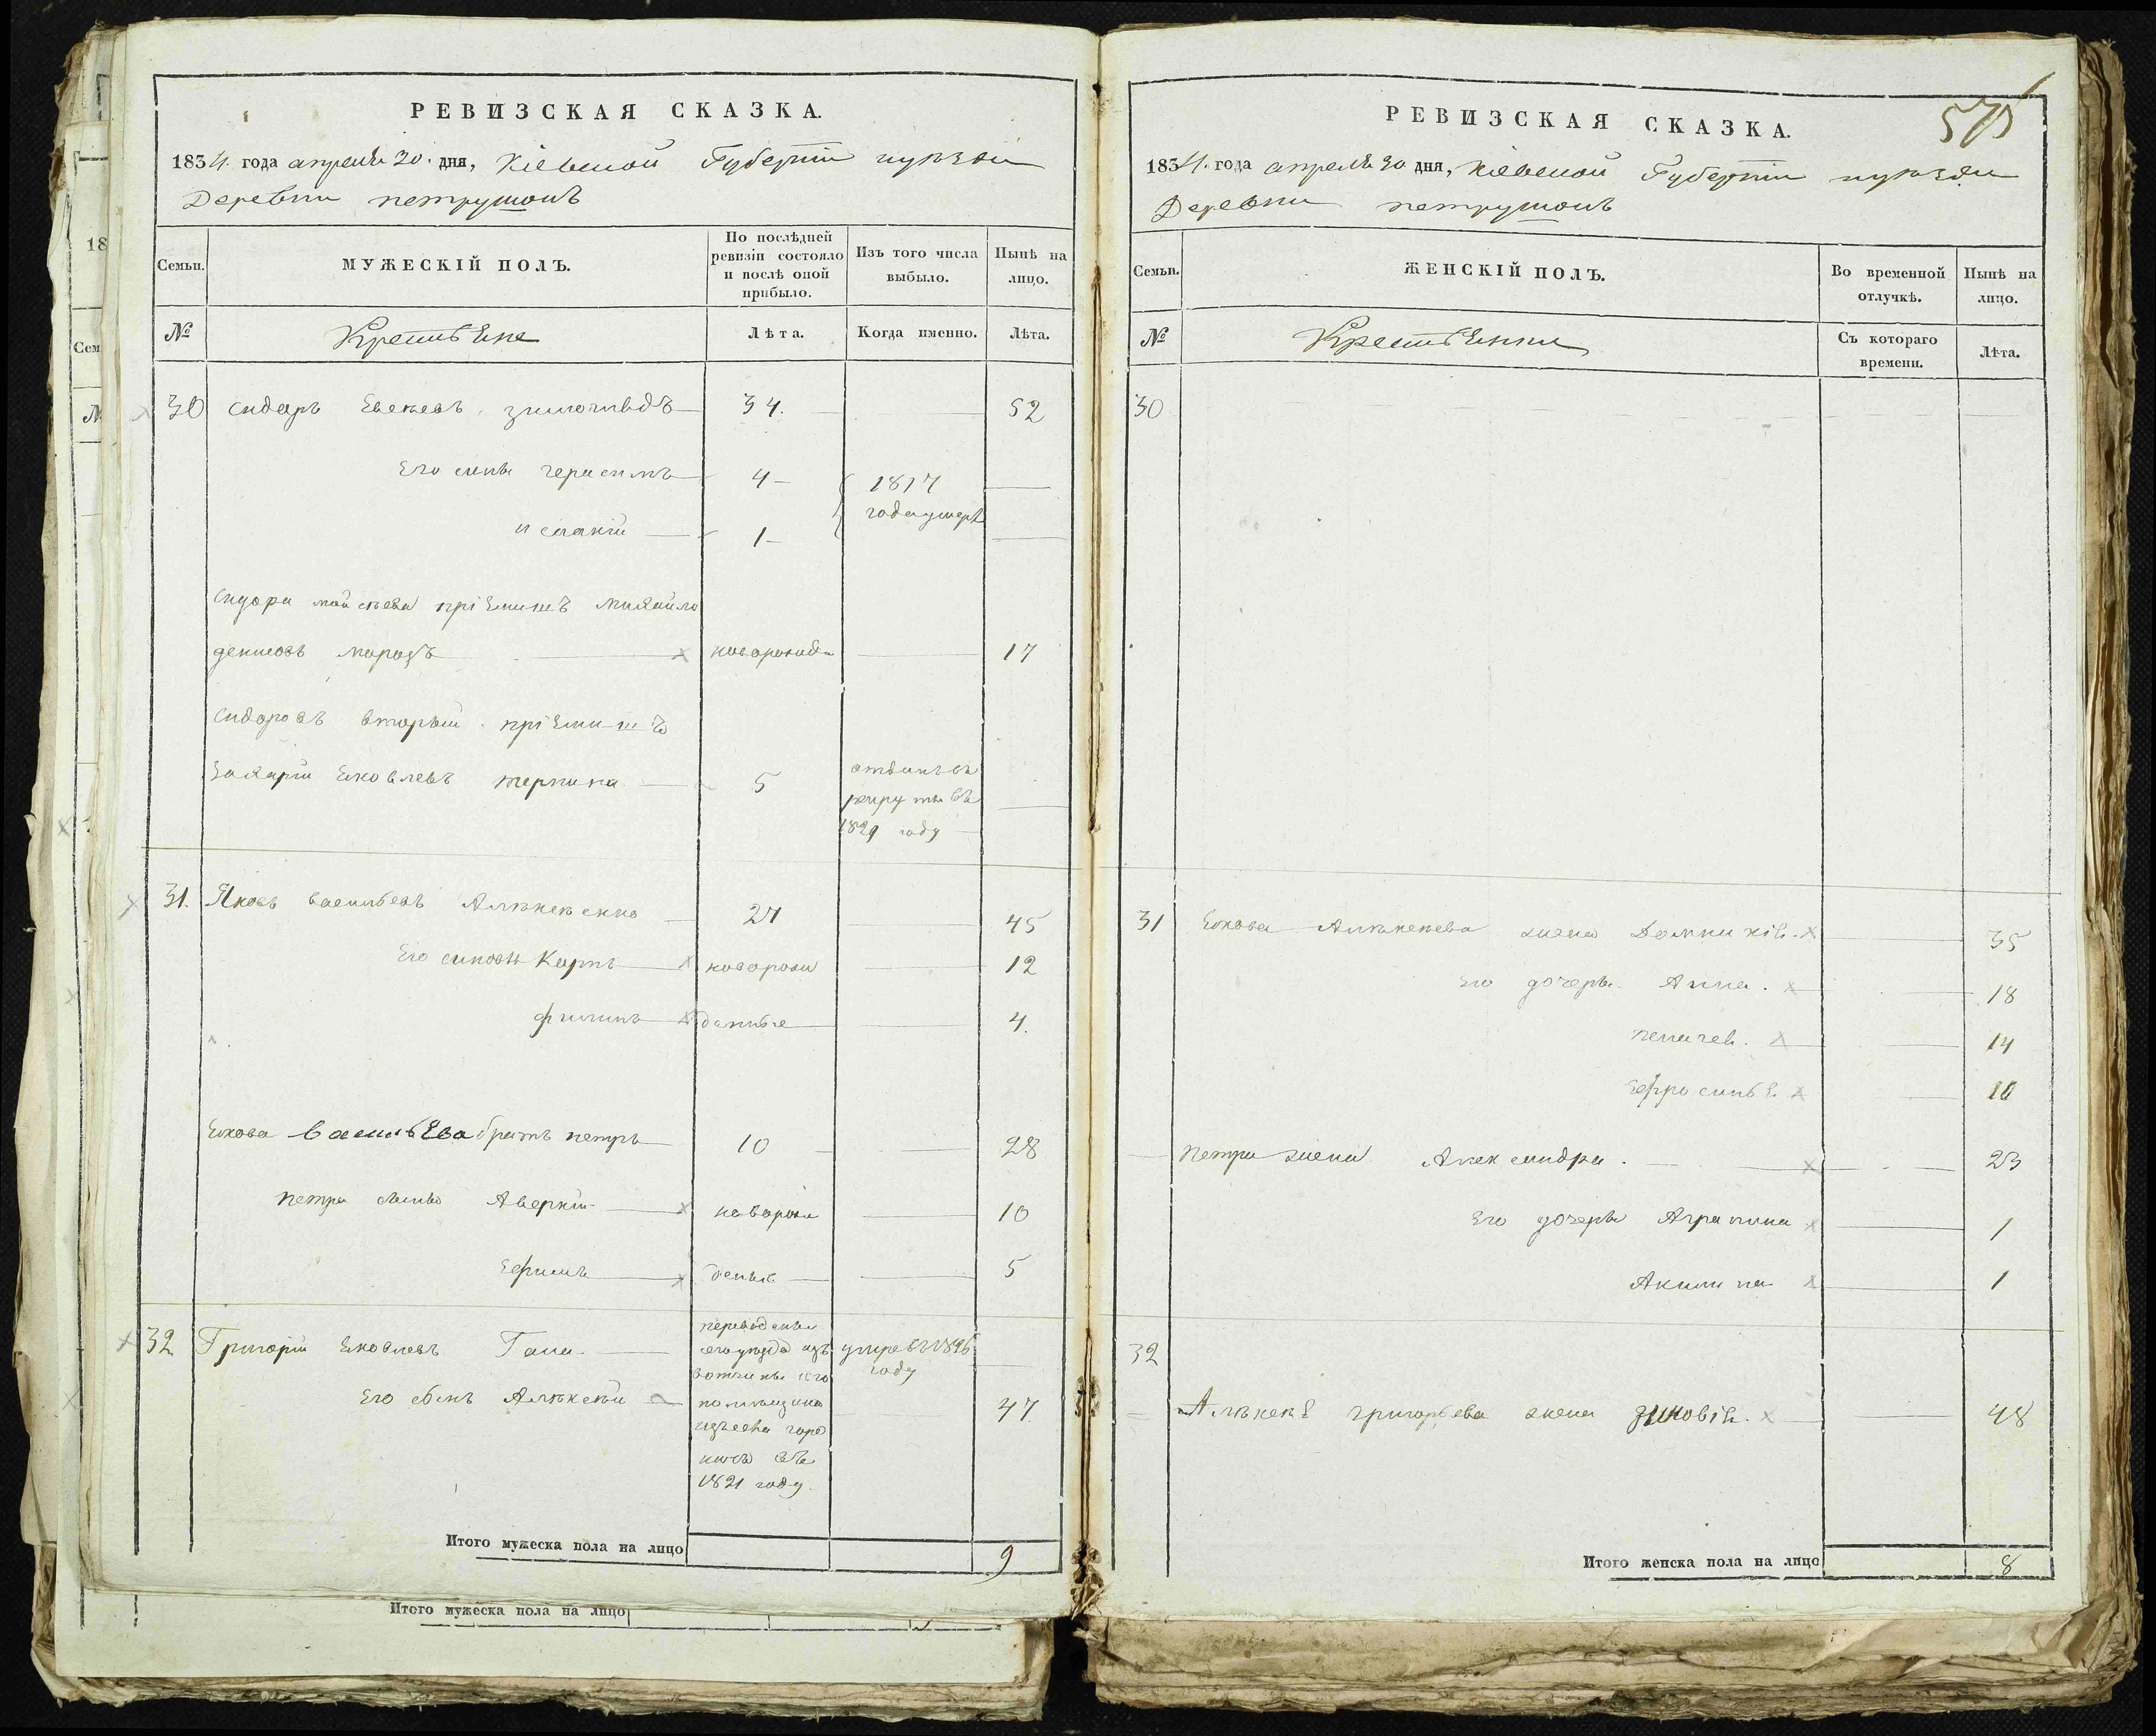 РЕВИЗСКАЯ СКАЗКА.
1834. года апреля 20. дня, Кіевской Губерніи
Деревни петрушокъ
Семьи.
МУЖЕСКІЙ ПОЛЪ.
По послѣдней
ревизіи состояло
и послѣ оной
прибыло.
Изъ того числа
выбыло.
Нынѣ на
лицо.
№
Крестьяне
Лѣта.
Когда именно.
Лѣта.
30 сидоръ 34. 52
Его сины герасимъ 4 1817
года умерли
и 1
сидора пріемишъ михайло
морозъ новорожд 17
сидоровъ вторый пріемишъ
Захарій Яковлевъ 5
1829 году
31. Яковъ васильевъ 27 45
Его синовья Карпъ новорож 12
филипъ данные 4.
Якова васильева братъ петръ 10 28
петра сыны Аверкій новорож 10
Ефимъ деные 5
32 Григорій Яковлевъ Гапа переведены
умре въ
году
Его сынъ Алѣксѣй 47
въ
1821 году.
Итого мужеска пола на лицо 9
Итого мужеска пола на лицо
575
РЕВИЗСКАЯ СКАЗКА.
1834. года апреля 20 дня, Кіевской Губерніи
Деревни петрушокъ
Семьи.
ЖЕНСКІЙ ПОЛЪ.
Во временной
отлучкѣ.
Нынѣ на
лицо.
№
Крестьянки
Съ котораго
времени.
Лѣта.
30
31 Якова жена Домникія 35
Его дочеры Анна. 18
14
Ефросинья 10
Петра жена Александра. 23
Его дочеры Агрипина 1
Акилина 1
32
Алѣксѣя григорьева жена зиновія. 48
Итого женска пола на лицо 8